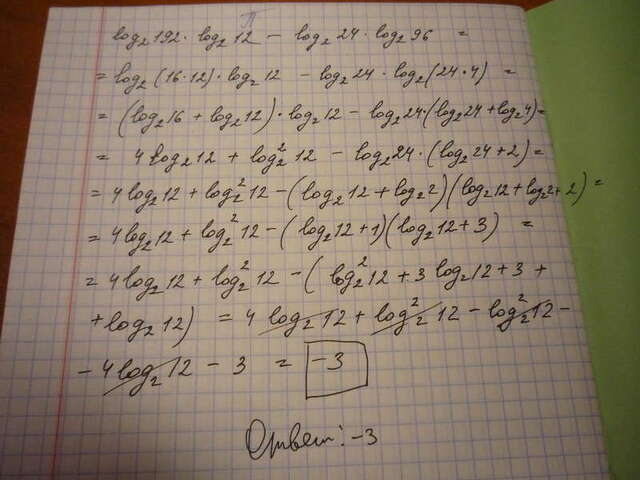 log₂192 · log₂12 − log₂24 · log₂96 =
= log₂(16·12) · log₂12 − log₂24 · log₂(24·4) =
= (log₂16 + log₂12) · log₂12 − log₂24·(log₂24 + log₂4) =
= 4 log₂12 + log₂²12 − log₂24 · (log₂24 + 2) =
= 4 log₂12 + log₂²12 − (log₂12 + log₂2)(log₂12 + log₂2 + 2) =
= 4 log₂12 + log₂²12 − (log₂12 + 1)(log₂12 + 3) =
= 4 log₂12 + log₂²12 − (log₂²12 + 3 log₂12 + 3 +
+ log₂12) = 4 log₂12 + log₂²12 − log₂²12 −
− 4 log₂12 − 3 = −3
Ответ: −3